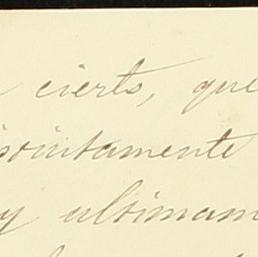 cierto, que
isointamente
y ultimam